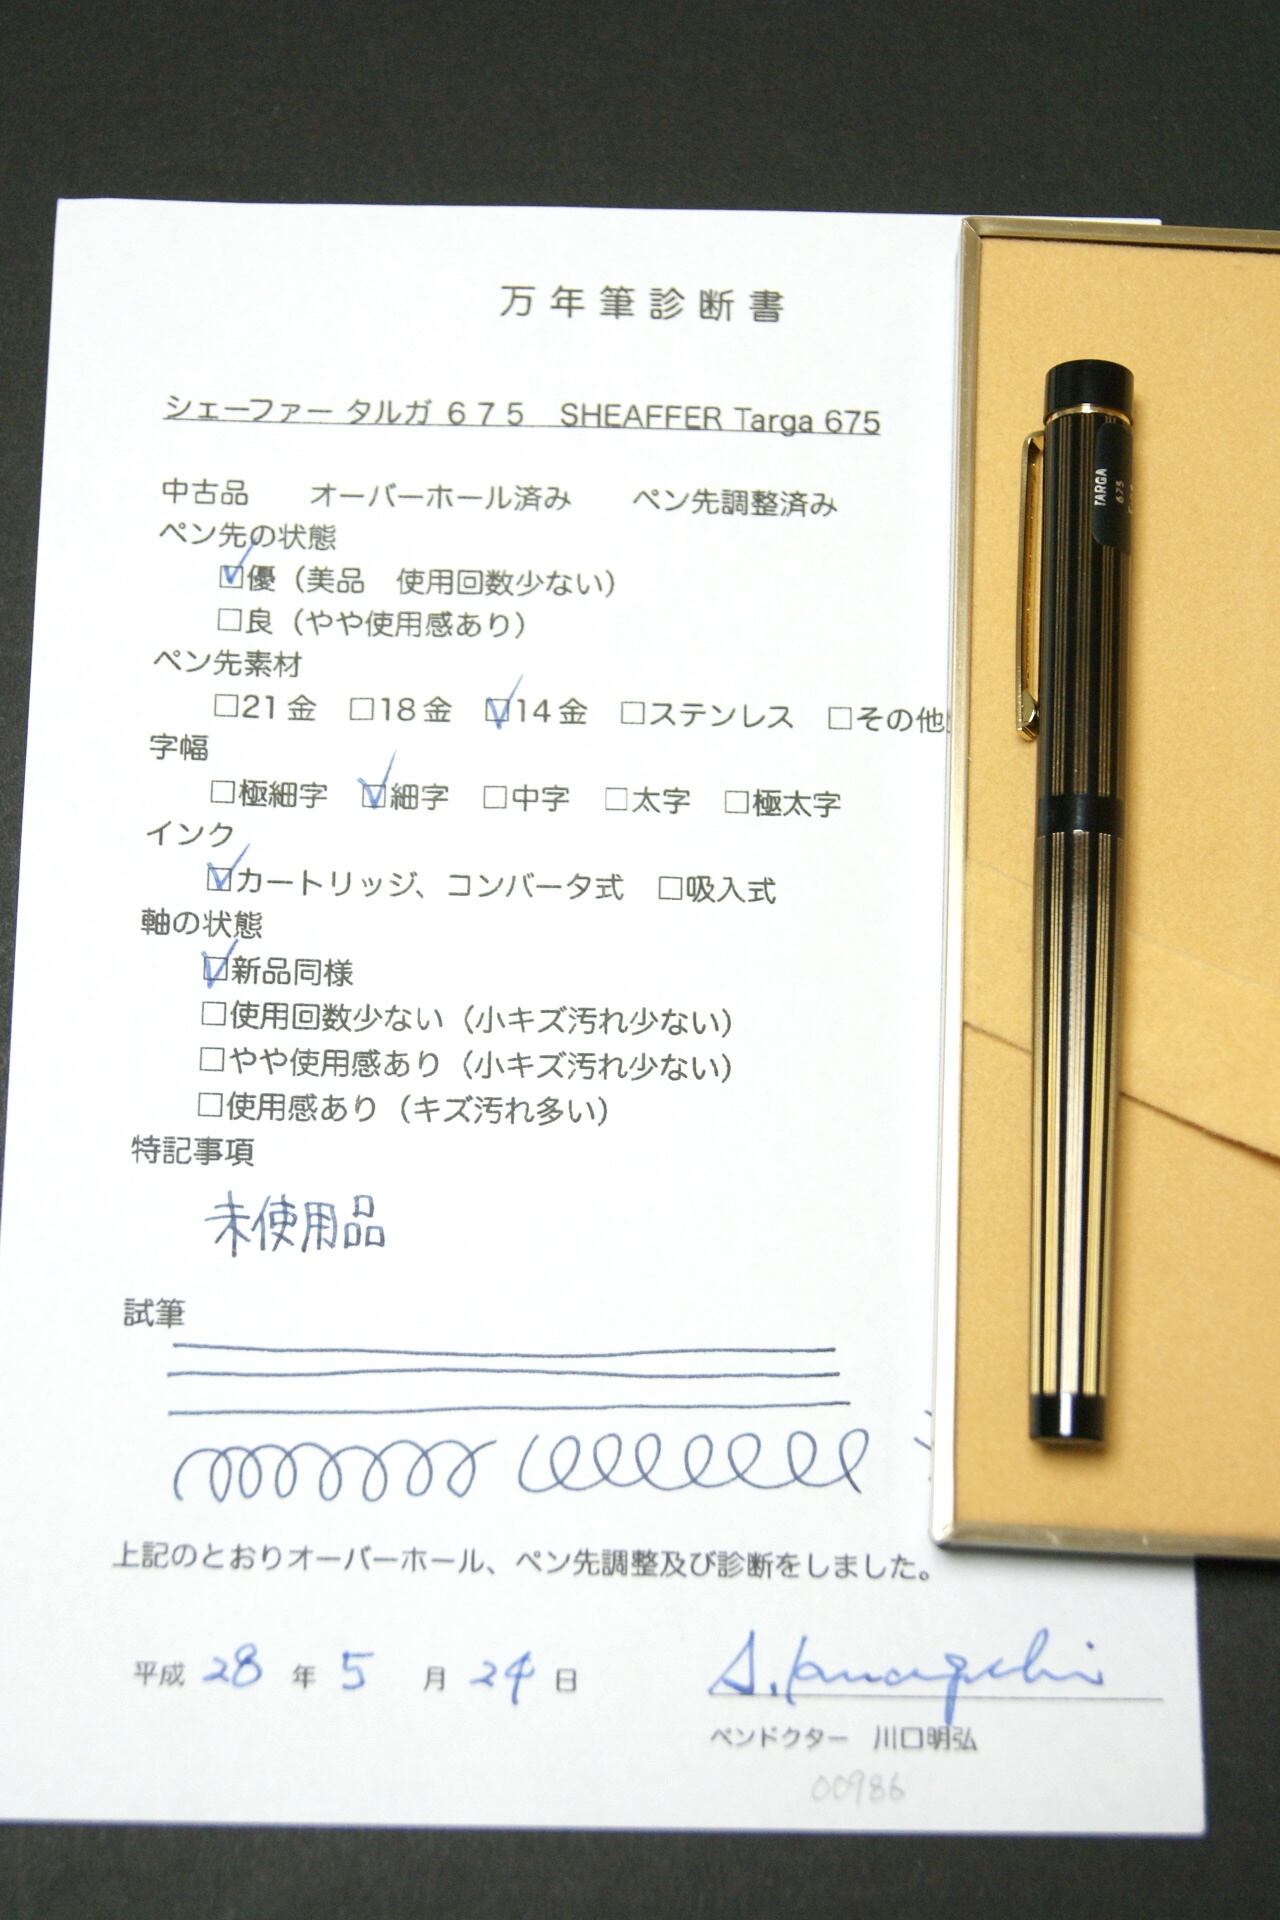 万年筆診断書
シェーファー タルガ 675　SHEAFFER Targa 675
中古品　オーバーホール済み　ペン先調整済み
ペン先の状態
☑優（美品　使用回数少ない）
□良（やや使用感あり）
ペン先素材
□21金　□18金　☑14金　□ステンレス　□その他
字幅
□極細字　☑細字　□中字　□太字　□極太字
インク
☑カートリッジ、コンバータ式　□吸入式
軸の状態
☑新品同様
□使用回数少ない（小キズ汚れ少ない）
□やや使用感あり（小キズ汚れ少ない）
□使用感あり（キズ汚れ多い）
特記事項
未使用品
試筆
上記のとおりオーバーホール、ペン先調整及び診断をしました。
平成 28 年 5 月 24 日
ペンドクター　川口明弘
00986
TARGA
675